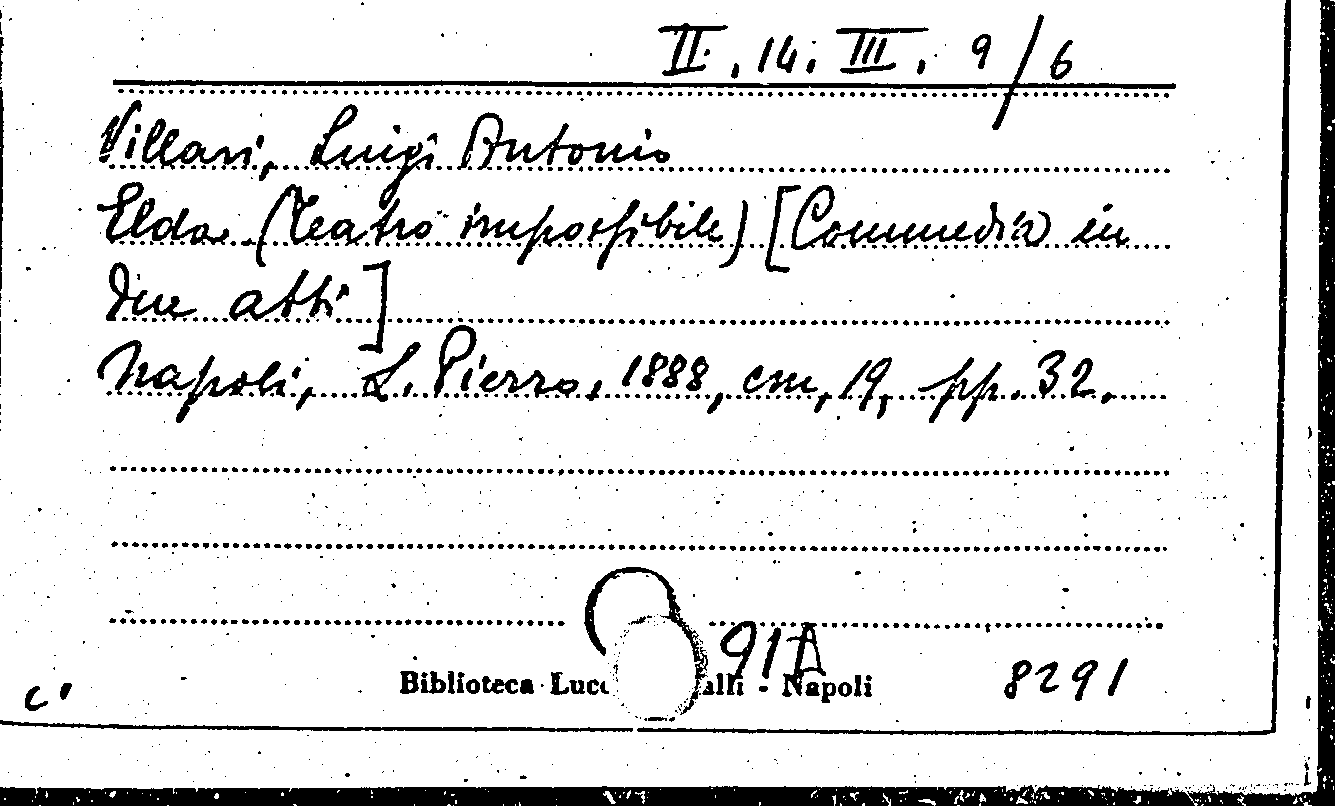 II. 14. III. 9/6
Villari, Luigi Antonio
Elda. (Teatro impossibile) [Commedia in
due atti]
Napoli, L. Pierro, 1888, cm. 19, pp. 32.
91A
Biblioteca Luc alli - Napoli
8291